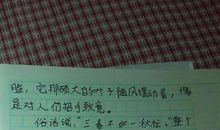 脸，它那硕大的叶子随风摆动着，像
是对人们招手致意。
俗话说：“三春不如一秋忙。”整个